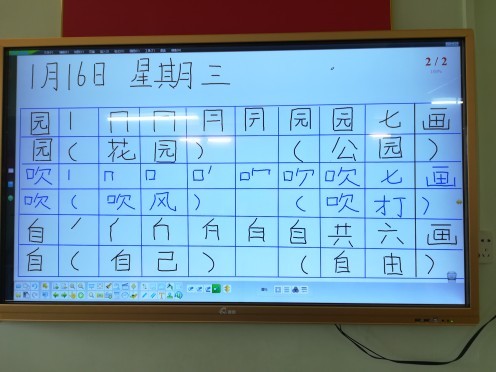 2/2
1月16日 星期三
园 丨 冂 园 园 七 画
园 ( 花 园 ) ( 公 园 )
吹 丨 口 吹 吹 七 画
吹 ( 吹 风 ) ( 吹 打 )
自 丿 白 自 共 六 画
自 ( 自 己 ) ( 自 由 )